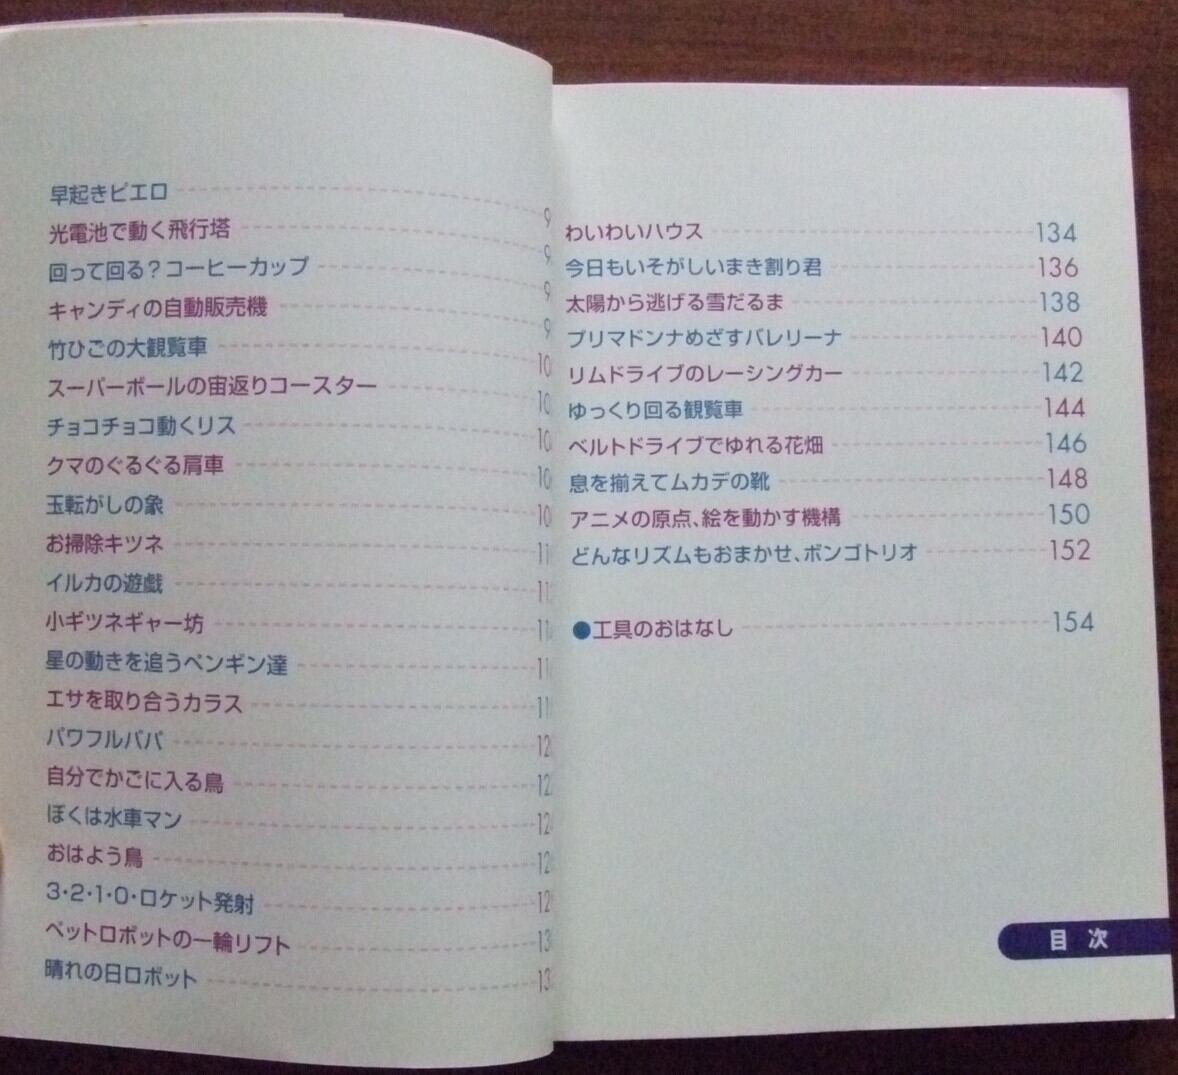 早起きピエロ 9
光電池で動く飛行塔 9
回って回る?コーヒーカップ 9
キャンディの自動販売機 9
竹ひごの大観覧車 10
スーパーボールの宙返りコースター 10
チョコチョコ動くリス 10
クマのぐるぐる肩車 10
玉転がしの象 10
お掃除キツネ 11
イルカの遊戯 11
小ギツネギャー坊 11
星の動きを追うペンギン達 11
エサを取り合うカラス 11
パワフルパパ 12
自分でかごに入る鳥 12
ぼくは水車マン 12
おはよう鳥 12
3・2・1・0・ロケット発射 12
ペットロボットの一輪リフト 13
晴れの日ロボット 13
わいわいハウス 134
今日もいそがしいまき割り君 136
太陽から逃げる雪だるま 138
プリマドンナめざすバレリーナ 140
リムドライブのレーシングカー 142
ゆっくり回る観覧車 144
ベルトドライブでゆれる花畑 146
息を揃えてムカデの靴 148
アニメの原点、絵を動かす機構 150
どんなリズムもおまかせ、ボンゴトリオ 152
●工具のおはなし 154
目 次